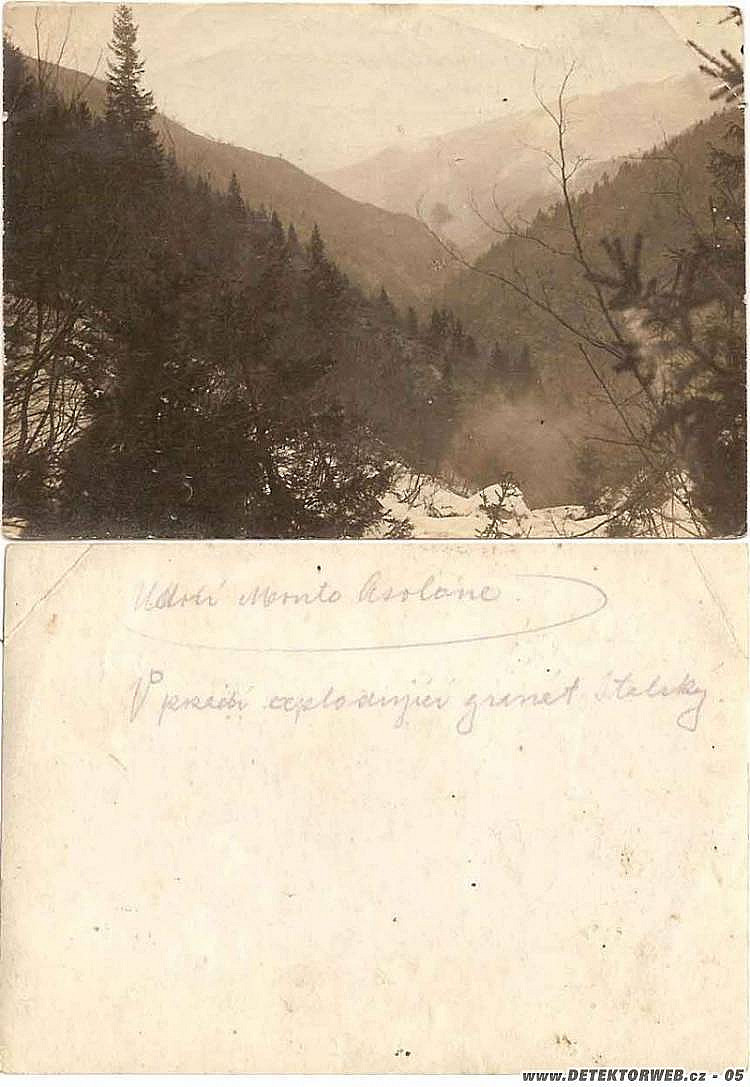 Udolí Monto Asolone.
V pozadí explodující granát Italský.
www.DETEKTORWEB.cz - 05